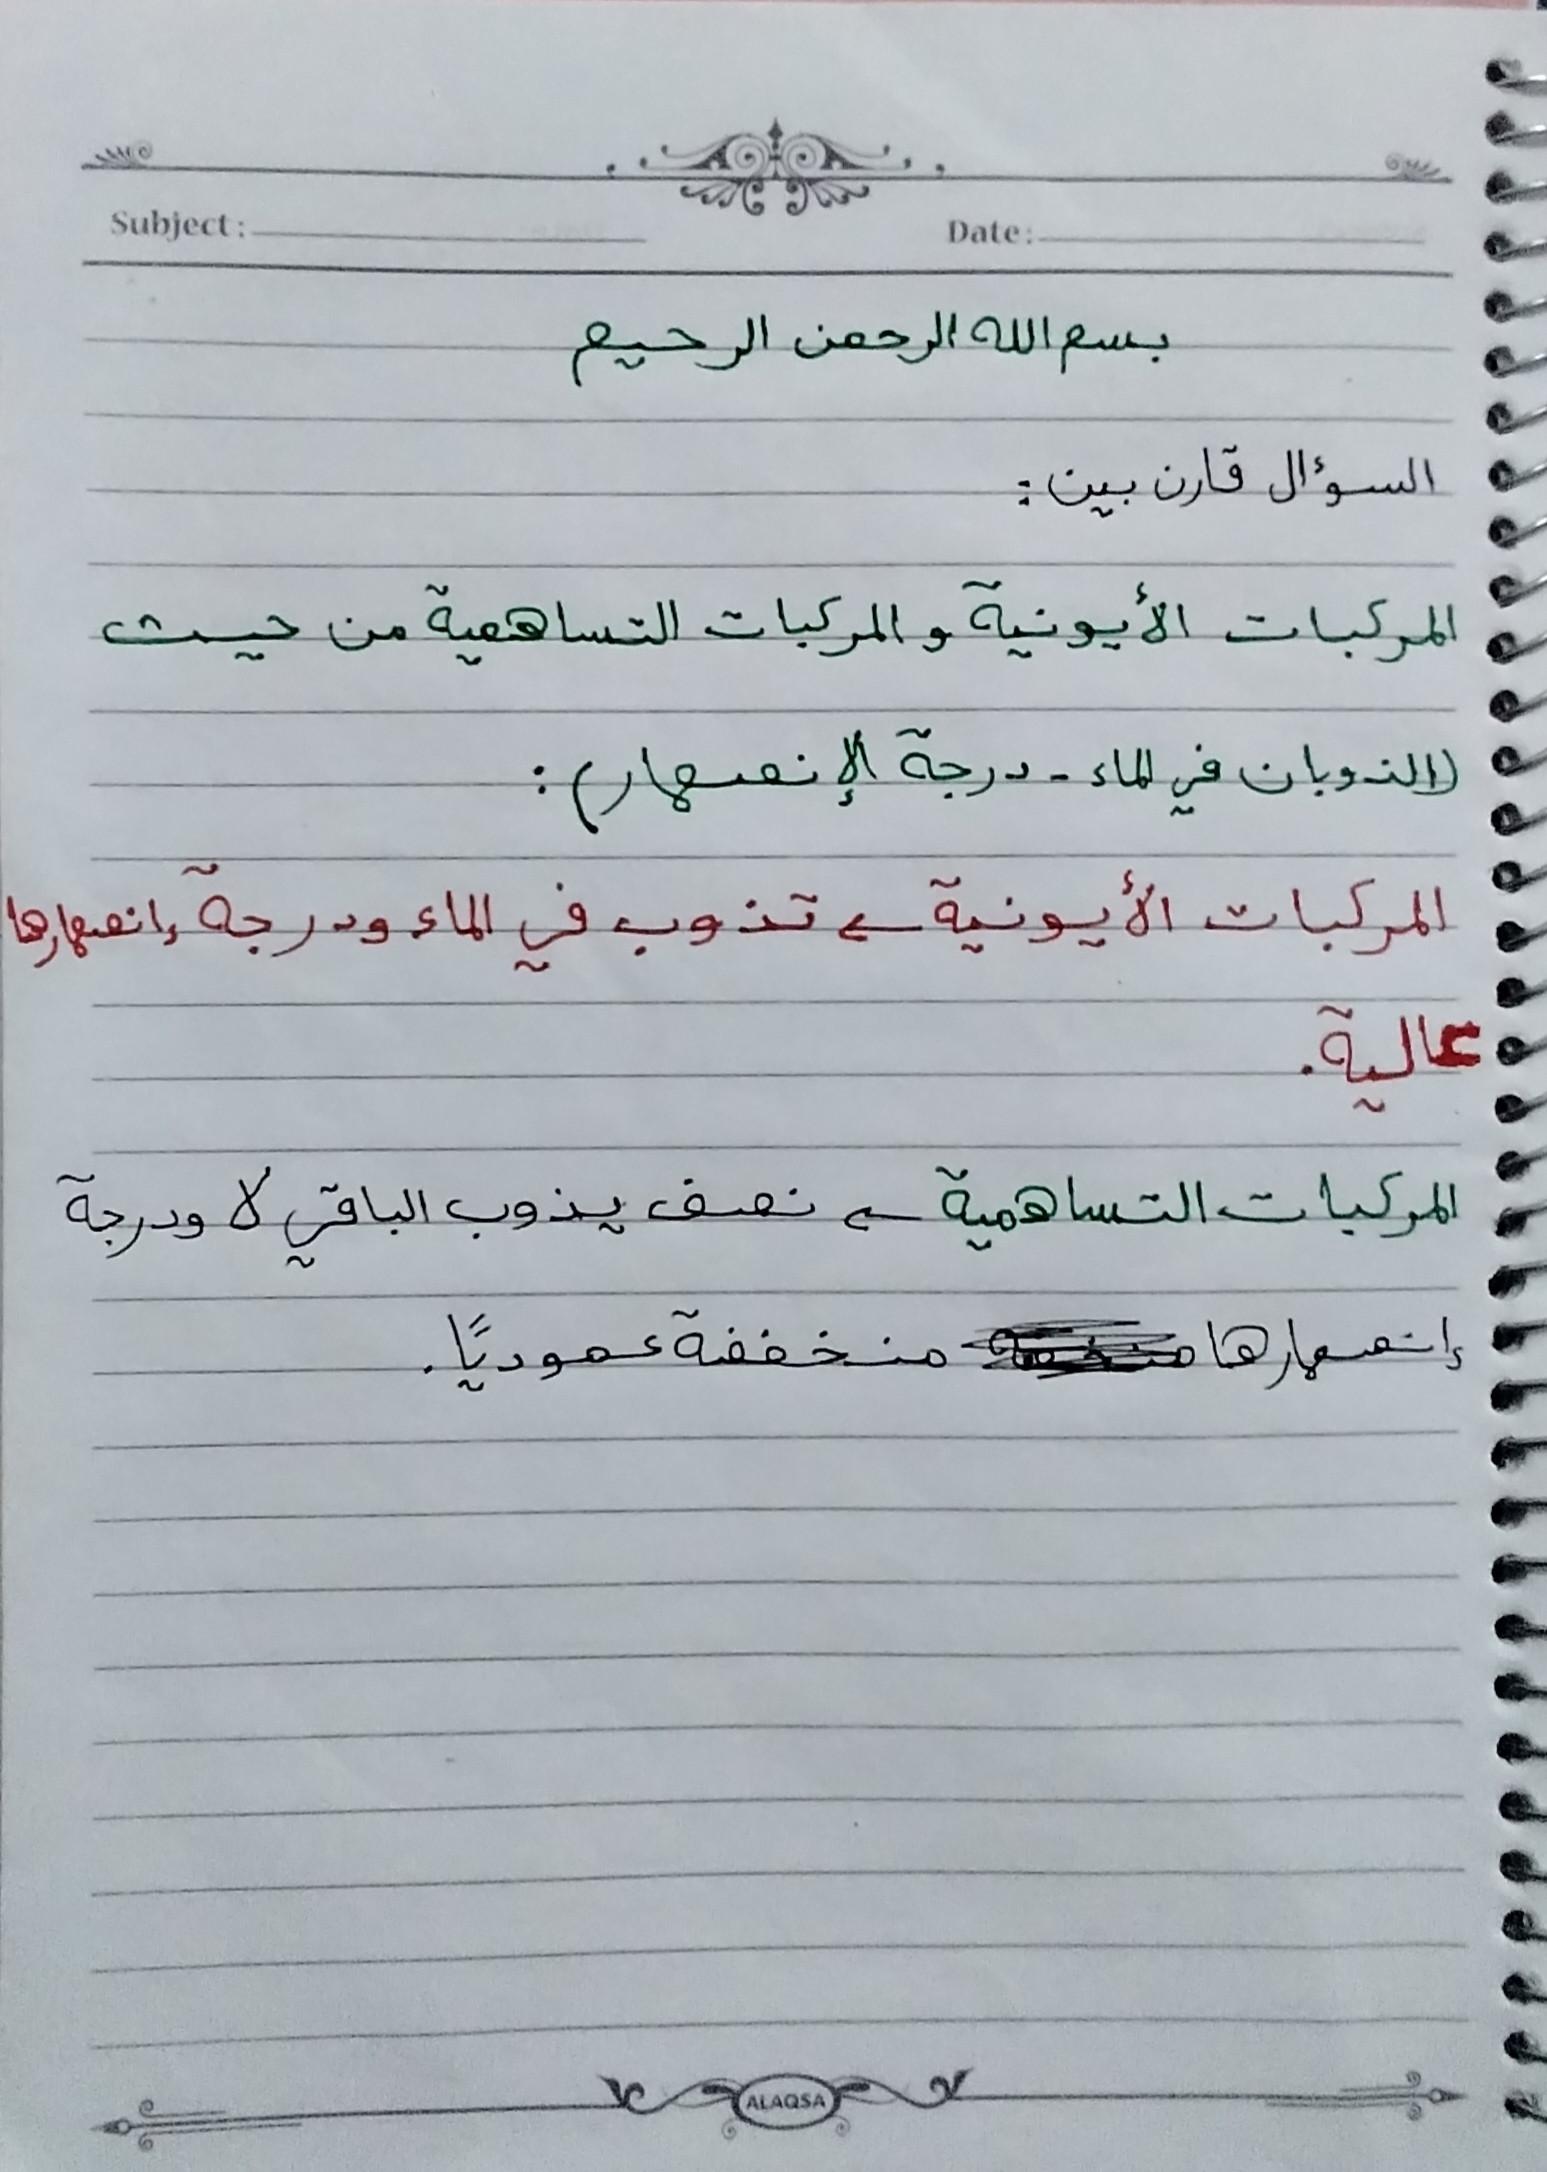 Subject: Date:
بسم الله الرحمن الرحيم
السؤال قارن بين :
المركبات الأيونية و المركبات التساهمية من حيث
(الذوبان في الماء - درجة الإنصهار) :
المركبات الأيونية ← تذوب في الماء ودرجة إنصهارها
عالية.
المركبات التساهمية ← نصف يذوب الباقي لا ودرجة
إنصهارها منخففة عموديًا.
ALAQSA